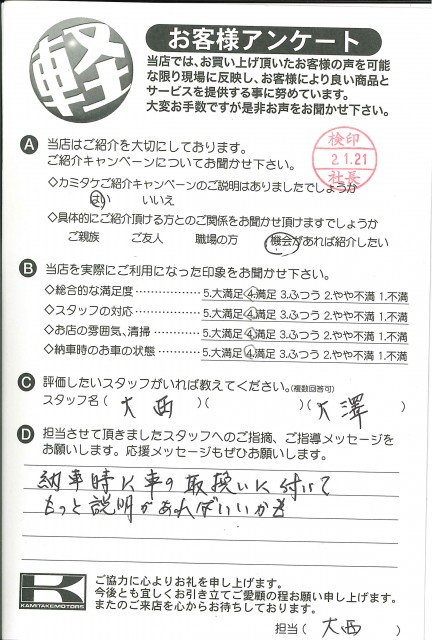 軽
お客様アンケート
当店では、お買い上げ頂いたお客様の声を可能
な限り現場に反映し、お客様により良い商品と
サービスを提供する事に努めています。
大変お手数ですが是非お声をお聞かせ下さい。
検印
21.21
社長
A 当店はご紹介を大切にしております。
ご紹介キャンペーンについてお聞かせ下さい。
◇カミタケご紹介キャンペーンのご説明はありましたでしょうか
はい いいえ
◇具体的にご紹介頂ける方とのご関係をお聞かせ頂けますでしょうか
ご親族 ご友人 職場の方 機会があれば紹介したい
B 当店を実際にご利用になった印象をお聞かせ下さい。
◇総合的な満足度 ················ 5.大満足 4.満足 3.ふつう 2.やや不満 1.不満
◇スタッフの対応 ················ 5.大満足 4.満足 3.ふつう 2.やや不満 1.不満
◇お店の雰囲気、清掃 ·········· 5.大満足 4.満足 3.ふつう 2.やや不満 1.不満
◇納車時のお車の状態 ·········· 5.大満足 4.満足 3.ふつう 2.やや不満 1.不満
C 評価したいスタッフがいれば教えてください。(複数回答可)
スタッフ名 ( 大西 )( )( 大澤 )
D 担当させて頂きましたスタッフへのご指摘、ご指導メッセージを
お願いします。応援メッセージもぜひお願いします。
納車時に車の取扱いに付いて
もっと説明があればいいかも
K
KAMITAKEMOTORS
ご協力に心よりお礼を申し上げます。
今後とも宜しくお引き立てご愛顧の程お願い申し上げます。
またのご来店を心からお待ちしております。
担当 ( 大西 )